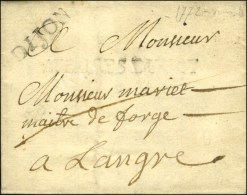 1772
DIJON
A Monsieur
Monsieur mariet
maitre de forge
a Langre